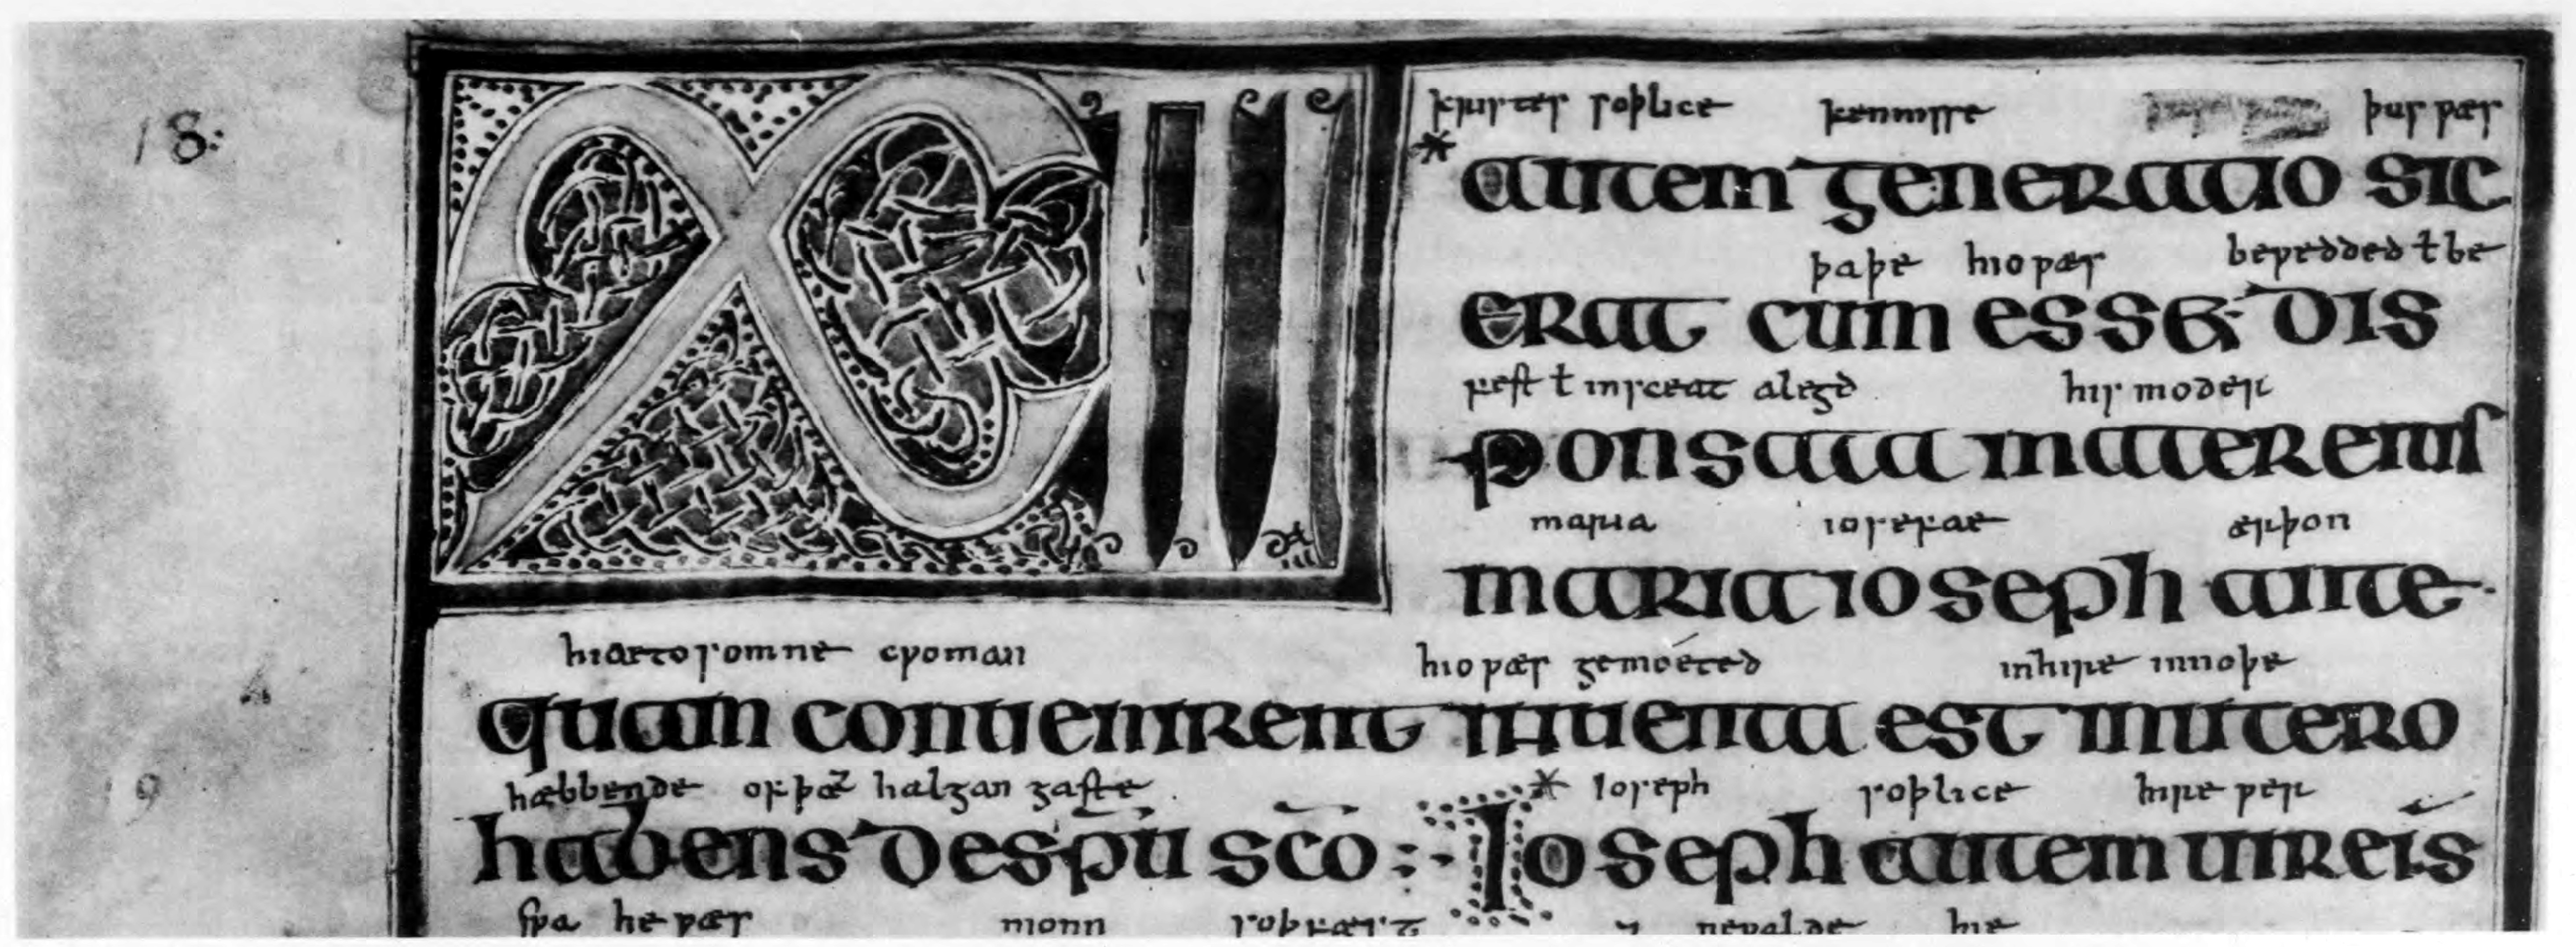 18:
XPI
kristes soþlice kennisse þus ƿæs
* autem generatio sic
þaþe hio ƿæs beƿedded ł be
erat cum esset dis
fest ł in sceat alegd his moder
ponsata mater eius
maria iosefae ærþon
maria ioseph ante
hiae tosomne cƿoman hio ƿæs gemoéted in hire innoþe
quam conuenirent inuenta est in utero
19
hæbbende of þæ̃ halgan gaste * Ioseph soþlice hire ƿer
habens de sp̄u sc̄o :- Ioseph autem uir eis
sƿa he ƿæs monn soþfæst ⁊ neƿalde hie